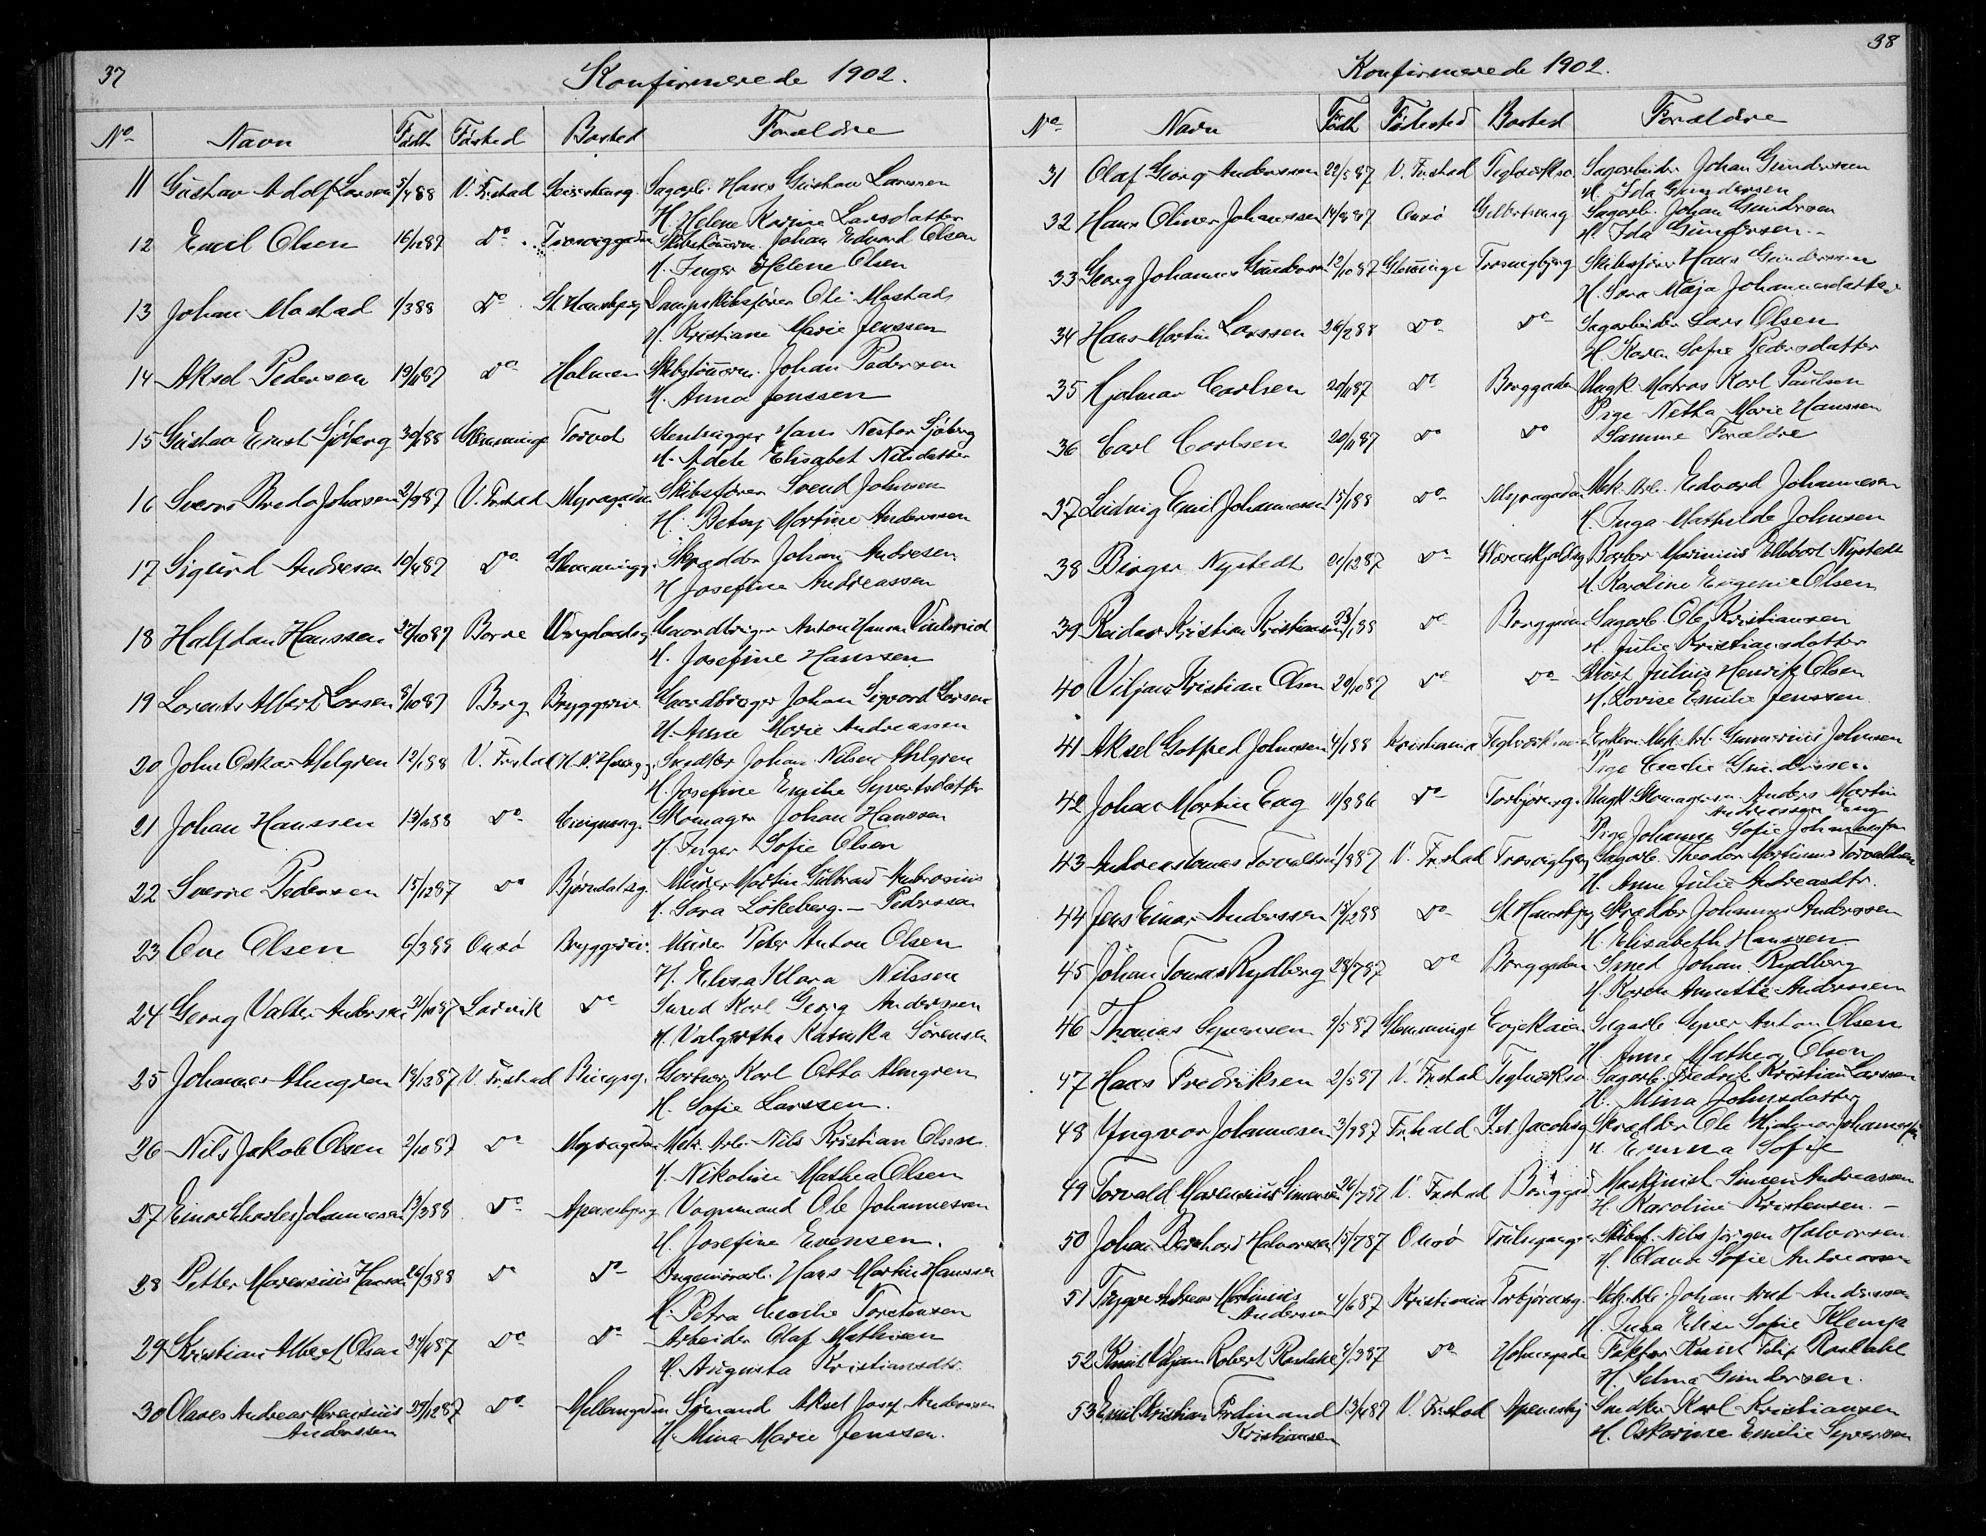 37
Konfirmerede 1902.
No Navn Født Fødested Bosted Forældre
11 Gustav Adolf Larsen 5/4 88 V. Frstad Sagarb. Hans Gustav Larssen
H. Helene Larsdatter
12 Emil Olsen 16/12 87 Do Johan Edvard Olsen
H. Inger Helene Olsen
13 Johan Mastad 1/3 88 Do St. Hansberg Dampskibsfører Ole Mastad
H. Kristiane Marie Jenssen
14 Aksel Pedersen 19/11 87 Do Holmen Skibstømm. Johan Pedersen
H. Anna Jenssen
15 Gustav Ernst Sjøberg Glemminge Torvet Stenhugger Hans Nestor Sjøberg
H. Adele Elisabet Nilsdatter
16 Johnsen 2/9 87 V. Frstad Myragaden Skibsfører Svend Johnsen
H. Betsy Martine Anderssen
17 Sigurd Andresen 10/4 87 Do Skrædder Johan Andresen
H. Josefine Andreassen
18 Halfdan Hanssen 27/10 87 Borre Anton Hansen
H. Josefine Hanssen
19 Lorents Albert Larsen 8/10 87 Berg Bryggerie Johan Sigvard Larsen
H. Anne Marie Andreassen
20 John Oskar Ahlgren 12/1 88 V. Frstad Snedker Johan Nilsen Ahlgren
H. Josefine Emilie Syvertsdatter
21 Johan Hanssen 13/2 88 Do Skomager Johan Hanssen
H. Inger Sofie Olsen
22 Sverre Pedersen 15/12 87 Do Bjørndalsg. Murer Martin Gulbrand Ambrosius
H. Sara Løkeberg. — Pederssen
23 Ove Olsen 6/3 88 Onsø Bryggerie. Murer Peter Anton Olsen
H. Elisa Klara Nilssen
24 Georg Valter Anderssen 31/10 87 Larvik Do Smed Karl Georg Anderssen
H. Sørensen
25 Johannes Almgren 19/12 87 V. Frstad Karl Otto Almgren
H. Sofie Larssen.
26 Nils Jakob Olsen 2/10 87 Do Myragaden Mek. Arb. Nils Kristian Olsen
H. Nikoline Mathea Olsen
27 Einar Charles Johannesen 13/3 88 Do Apenesbjerg Vognmand Ole Johannessen
H. Josefine Evensen.
28 Petter Marensius Hansen 26/3 88 Do Do Hans Martin Hanssen
H. Petra Emilie Torstensen
29 Kristian Albert Olsen 27/4 87 Do Do Arbeider Olaf Mathisen
H. Augusta Kristiansdtr.
30 Olaves Andreas Marensius Anderssen 27/12 87 Do Mellemgaden Sømand Aksel Josef Anderssen
H. Mina Marie Jenssen.
38
Konfirmerede 1902.
No Navn Født Fødested Bosted Forældre
31 Olaf Georg Anderssen 22/5 87 V. Frstad Teglværksa Sagarbeider Johan Gunderssen
H. Ida Gundersen
32 Hans Oliver Johanssen Onsø Sagarb. Johan Gundersen
H. Ida Gundersen.
33 Georg Johannes Gundersen 12/10 87 Glemminge Trosvigbjerg Skibsfører Hans Gunderssen
H. Sara Maja Johannesdatter
34 Hans Martin Larssen 26/2 88 Do Do Sagarbeider Lars Olsen
H. Karen Sofie Pedersdatter
35 Hjalmar Carlsen 20/11 87 Do Borggaden Ungk. Matros Karl Paulsen
Pige Netha Marie Hanssen
36 Carl Carlsen 20/11 87 Do Do Samme Forældre
37 Ludvig Emil Johannessen 15/1 88 Do Myragaden Mek. Arb. Edvard Johannesen
H. Inga Mathilde Johnsen
38 Birger Nystedt 21/12 87 Do Barber Marinius Nystedt
H. Karoline Eugenie Olsen
39 Reidar Kristian Kristiansen 23/1 88 Do Borggaden Sagarb. Ole Kristiansen
H. Julie Kristiansdatter
40 Viljam Kristian Olsen 20/10 87 Do Do Julius Henrik Olsen
H. Lovise Emilie Jenssen.
41 Aksel Gotfred Johnssen 4/1 88 Kristiania Enkem. Mek. Arb. Gunnerius Johnsen
Pige Emilie Gunderssen.
42 Johan Martin Eng 11/8 86 Do Torbjørnsg. Ungk. Skomagersv. Anders Martin
Andreassen Eng
Pige Johanne Sofie Johannessen
43 Andreas Tomas Torvaldsen 1/8 87 V. Frstad Trosvigbjerg Sagarb. Theodor Martinus Torvaldsen
H. Anne Julie Andreasdtr.
44 Jens Einar Anderssen 18/12 88 Do St. Hansbjerg Skrædder Johannes Anderssen
H. Elisabeth Hanssen.
45 Johan Tomas Rydberg 28/7 87 Do Borggaden Smed Johan Rydberg
H. Karen Annette Anderssen
46 Thomas Syversen 2/5 87 Glemminge Sagarb. Syver Anton Olsen
H. Anne Mathea Olsen
47 Hans Fredriksen 2/5 87 V. Frstad Teglværksa Sagarb. Fredrik Kristian Larssen
H. Mina Johnsdatter
48 Yngvar Johannesen 3/9 87 Frhald Skrædder Ole Hjalmar Johannessen
H. Emma Sofie
49 Torvald Marensius Simensen 26/7 87 V. Frstad Maskinist Simen Andreassen
H. Karoline Kristensen. —
50 Johan Bernhard Halvorsen 15/7 87 Onsø Skibsf. Nils Jörgen Halvorsen
H. Olava Sofie Andreassen
51 Trygve Andreas Martinius Andersen 4/6 87 Kristiania Torbjørnsg. Mek. Arb. Johan Andersen
H. Inga Elise Sofie
52 Knut Viljam Robert Rosdahl 4/3 87 Do Holmegaden Faktor Knut Filip Rosdahl
H. Selma Gundersen.
53 Emil Kristian Ferdinand Kristiansen 13/4 87 V. Frstad Apenesbj Snedker Karl Kristiansen
H. Oskarine Emilie Syversen